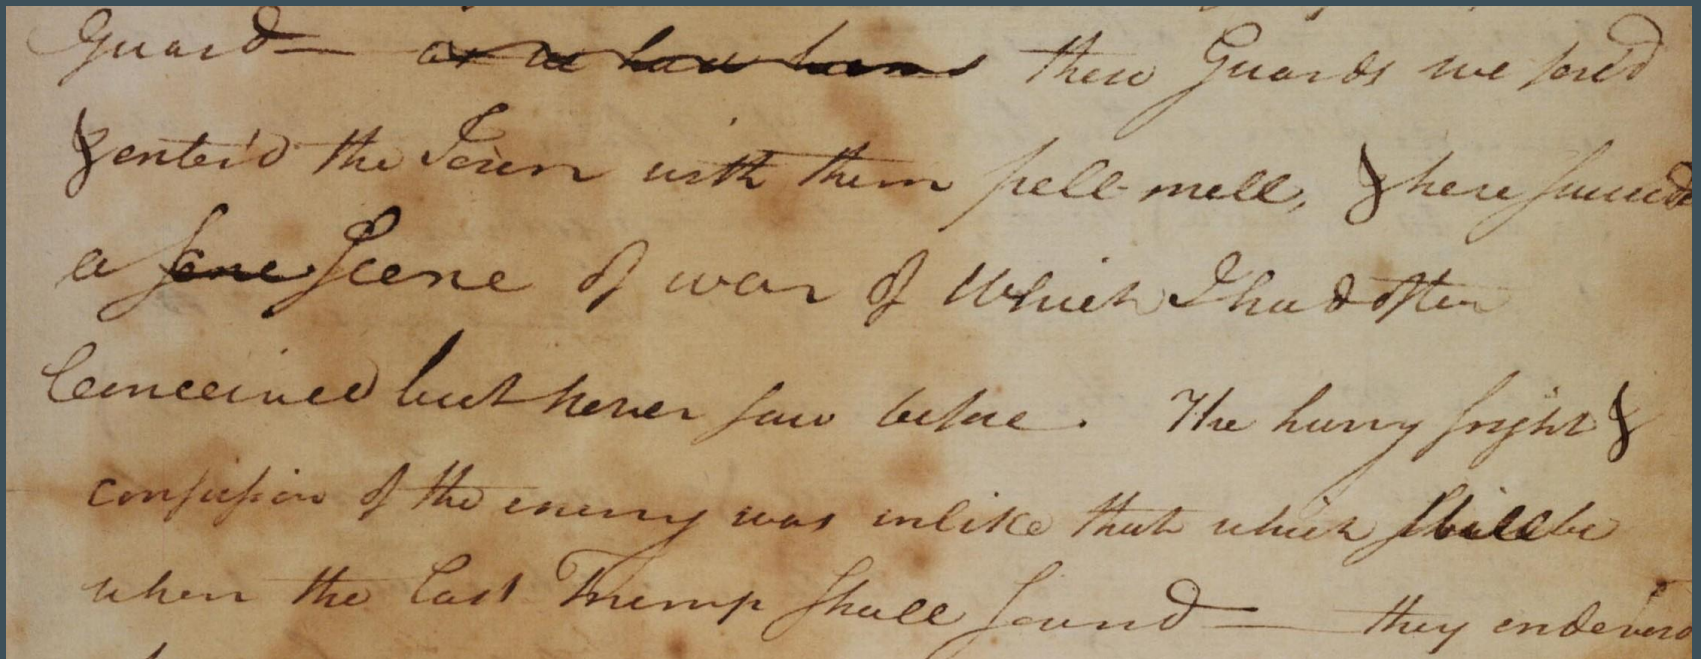 Guard— as we had been these Guards we forc'd
& enter'd the Town with them pell-mell, & here succeeded
a Scene Scene of war of Which I had often
Conceived but never saw before. The hurry fright &
confusion of the enemy was unlike that which shall be
when the last Trump shall sound — they endeverd